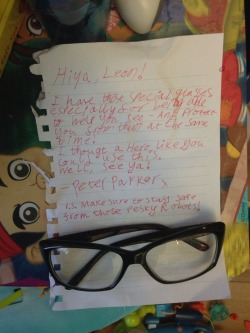 Hiya, Leon!
I have these special glasses
especially for being able
to help you see - And Protect
You from that at the same
time!
I though a Hero, like you
could use this.
Well, see ya!
- Peter Parker
P.S. Make sure to stay safe
from those pesky Robots!